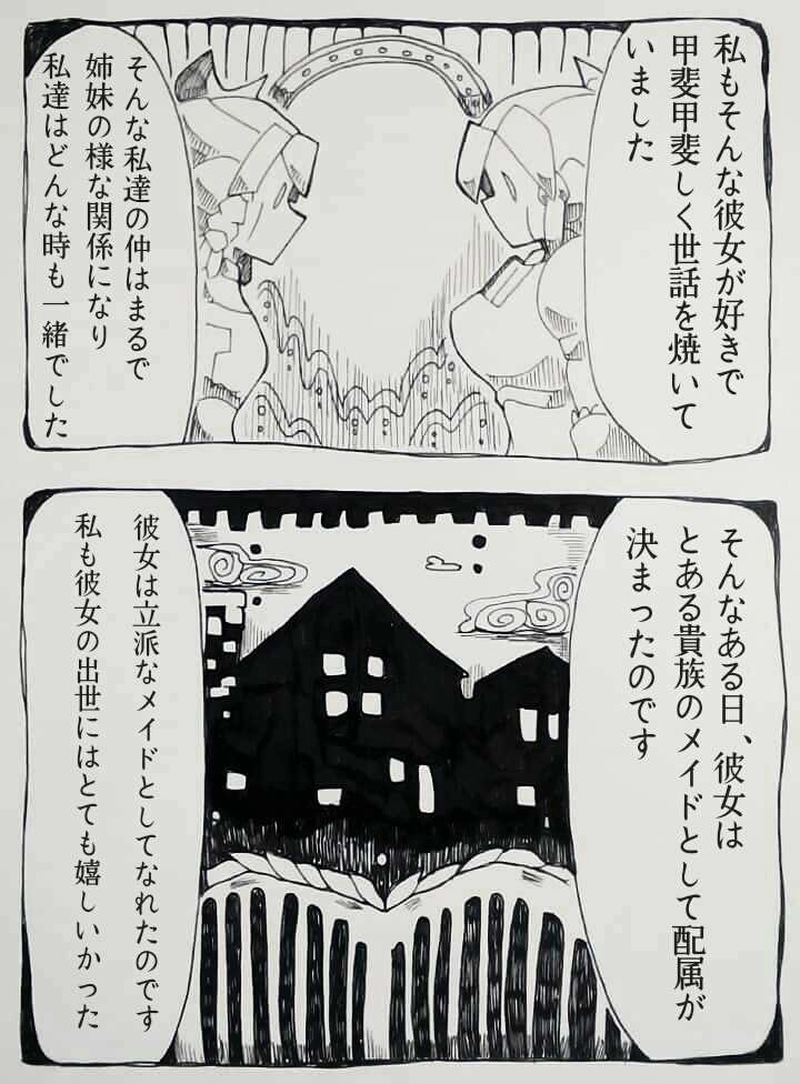 私もそんな彼女が好きで
甲斐甲斐しく世話を焼いて
いました
そんな私達の仲はまるで
姉妹の様な関係になり
私達はどんな時も一緒でした
そんなある日、彼女は
とある貴族のメイドとして配属が
決まったのです
彼女は立派なメイドとしてなれたのです
私も彼女の出世にはとても嬉しいかった